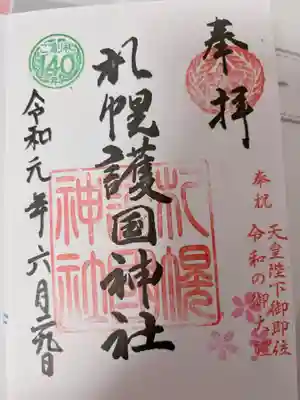 奉拝
奉祝
天皇陛下御即位
令和の御大禮
札幌護国神社
札幌
護國
神社
140
令和元年六月二九日